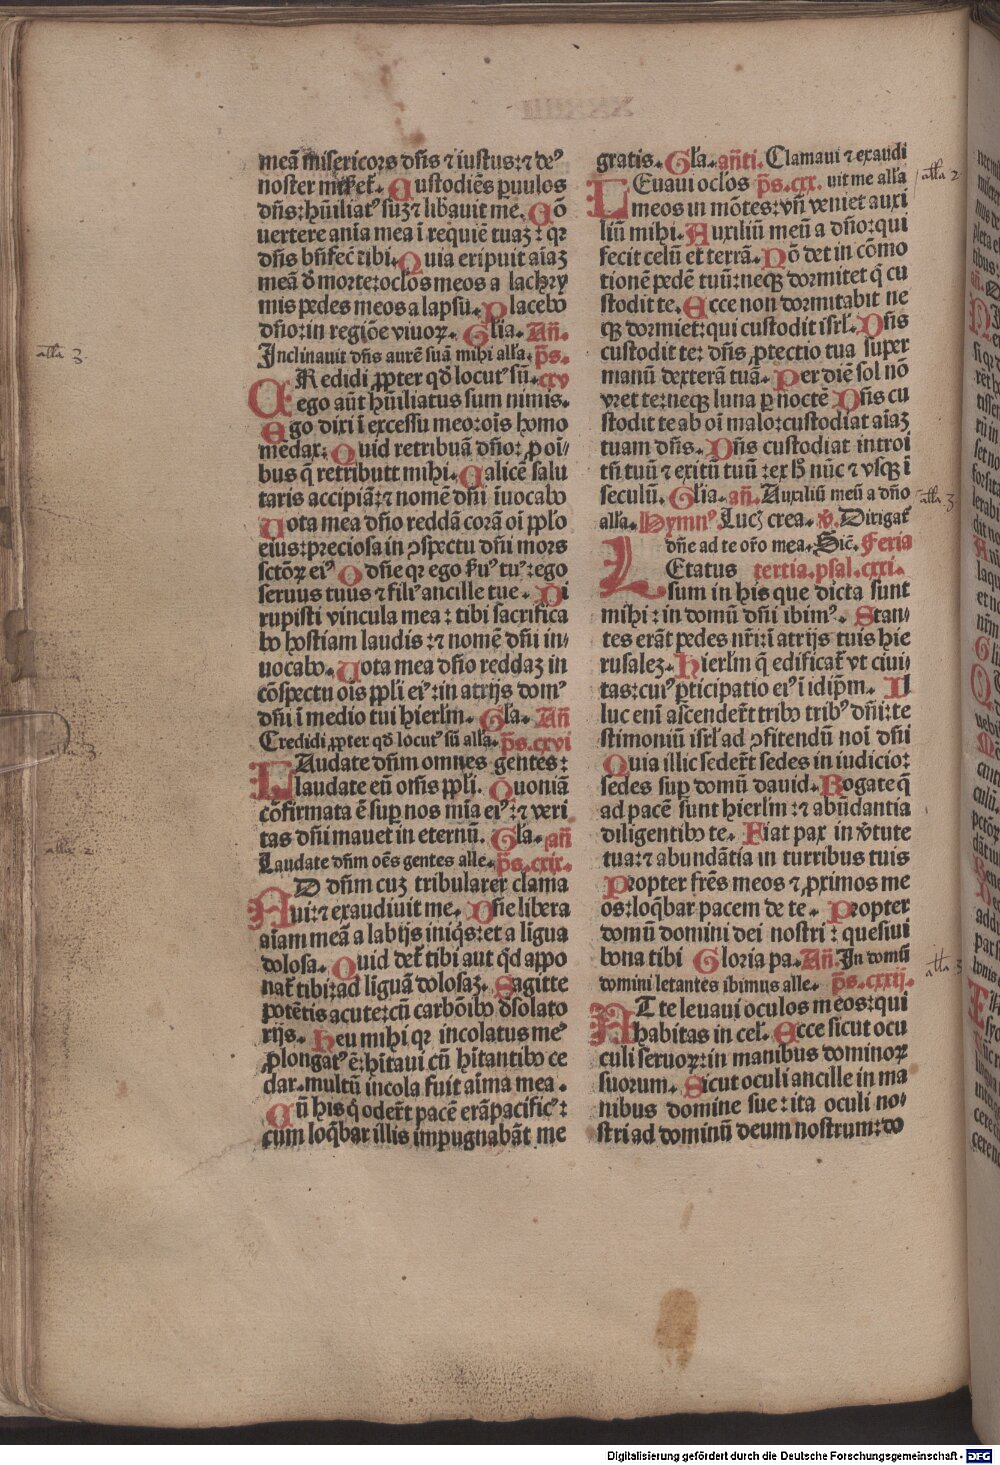 meā misericors dñs ⁊ iustus:⁊ de⁹
noster miset̄. Custodiēs puulos
dñs:hūiliat⁹ suꝫ ⁊ libauit me. Cō
uertere anīa mea ī requiē tuaꝫ : qꝛ
dñs bñfeċ tibi. Quia eripuit aīaꝫ
meā ð morte:oclos meos a lachꝛy
mis pedes meos a lapsu. Placebo
dño:in regiōe viuoꝝ. Glīa. Añ.
Inclinauit dñs aurē suā mihi alła. ps.
CRedidi ꝓpter qð locut⁹ sū. cxv
ego aūt hūiliatus sum nimis.
Ego dixi ī excessu meo:oīs homo
mēdax. Quid retribuā dño: ꝓ oī/
bus q̄ retributt mihi. Calicē salu
taris accipiā:⁊ nomē dñi īuocabo
Uota mea dño reddā corā oī pplo
eius:preciosa in ꝯspectu dñi mors
sctōꝝ ei⁹ O dñe qꝛ ego su⁹ tu⁹:ego
seruus tuus ⁊ fili⁹ ancille tue. Di
rupisti vincula mea : tibi sacrifica
bo hostiam laudis :⁊ nomē dñi in/
uocabo. Uota mea dño reddaꝫ in
cōspectu oīs ppli ei⁹:in atrijs dom⁹
dñi ī medio tui hierlm. Gła. Añ
Credidi ꝓpter qð locut⁹ sū alła. ps. cxvi
LAudate dñm omnes gentes :
laudate eū omīs ppli. Quoniā
cōfirmata ē sup nos mīa ei⁹ :⁊ veri
tas dñi manet in eternū. Gła. añ
Laudate dñm oēs gentes alle. ps. cxix.
AD dñm cuꝫ tribularer clama
ui:⁊ exaudiuit me. Dñe libera
aīam meā a labijs iniq̇s:et a ligua
dolosa. Quid det̄ tibi aut qd appo
nat̄ tibi:ad liguā dolosaꝫ. Sagitte
potētis acute:cū carbōibo ðsolato
rijs. Heu mihi qꝛ incolatus me⁹
ꝓlongat⁹ ē:hītaui cū hītantibo ce
dar.multū incola fuit aīma mea .
Cū his q̇ odert̄ pacē erā pacific⁹ :
cum loqbar illis impugnabāt me
gratis. Gła. añti. Clamaui ⁊ exaudi
LEuaui oclos ps. cxx. uit me alła
meos in mōtes:vñ veniet auxi
liū mihi. Auxiliū meū a dño:qui
fecit celū et terrā. Nō det in cōmo
tionē pedē tuū:neqꝫ dormitet q̇ cu
stodit te. Ecce non dormitabit ne
qꝫ dormiet:qui custodit isrl̄. Dñs
custodit te: dñs ꝓtectio tua super
manū dexterā tuā. Per diē sol nō
vret te:neqꝫ luna p noctē Dñs cu
stodit te ab oī malo:custodiat aīaꝫ
tuam dñs. Dñs custodiat introi
tū tuū ⁊ exitū tuū :ex h̄ nūc ⁊ vsqꝫ ī
seculū. Glīa. añ. Auxiliū meū a dño
alła. Hymn⁹. Lucꝭ crea. v̄. Dirigat̄
dñe ad te oro mea. Sic̄. Feria
LEtatus tertia. psal. cxxi.
sum in his que dicta sunt
mihi : in domū dñi ibim⁹. Stan/
tes erāt pedes nr̄i:ī atrijs tuis hie
rusaleꝫ. Hierlm q̄ edificat̄ vt ciui/
tas:cui⁹ pticipatio ei⁹ ī idip̄m. Il
luc enī ascendert̄ tribo trib⁹ dñi:te
stimoniū isrl̄ ad ꝯfitendū noī dñi
Quia illic sedert̄ sedes in iudicio:
sedes sup domū dauid. Rogate q̄
ad pacē sunt hierlm :⁊ abūdantia
diligentibo te. Fiat pax in v̄tute
tua:⁊ abundātia in turribus tuis
Propter frēs meos ⁊ ꝓximos me
os:loqbar pacem de te. Propter
domū domini dei nostri : quesiui
bona tibi Gloria pa. Añ. In domū
domini letantes ibimus alle. ps. cxxij.
AD te leuaui oculos meos:qui
habitas in cel̄. Ecce sicut ocu
culi seruoꝝ:in manibus dominoꝝ
suorum. Sicut oculi ancille in ma
nibus domine sue:ita oculi no/
stri ad dominū deum nostrum:do
alla 3.
alla 2
alla 3
alla 3
Digitalisierung gefördert durch die Deutsche Forschungsgemeinschaft - DFG